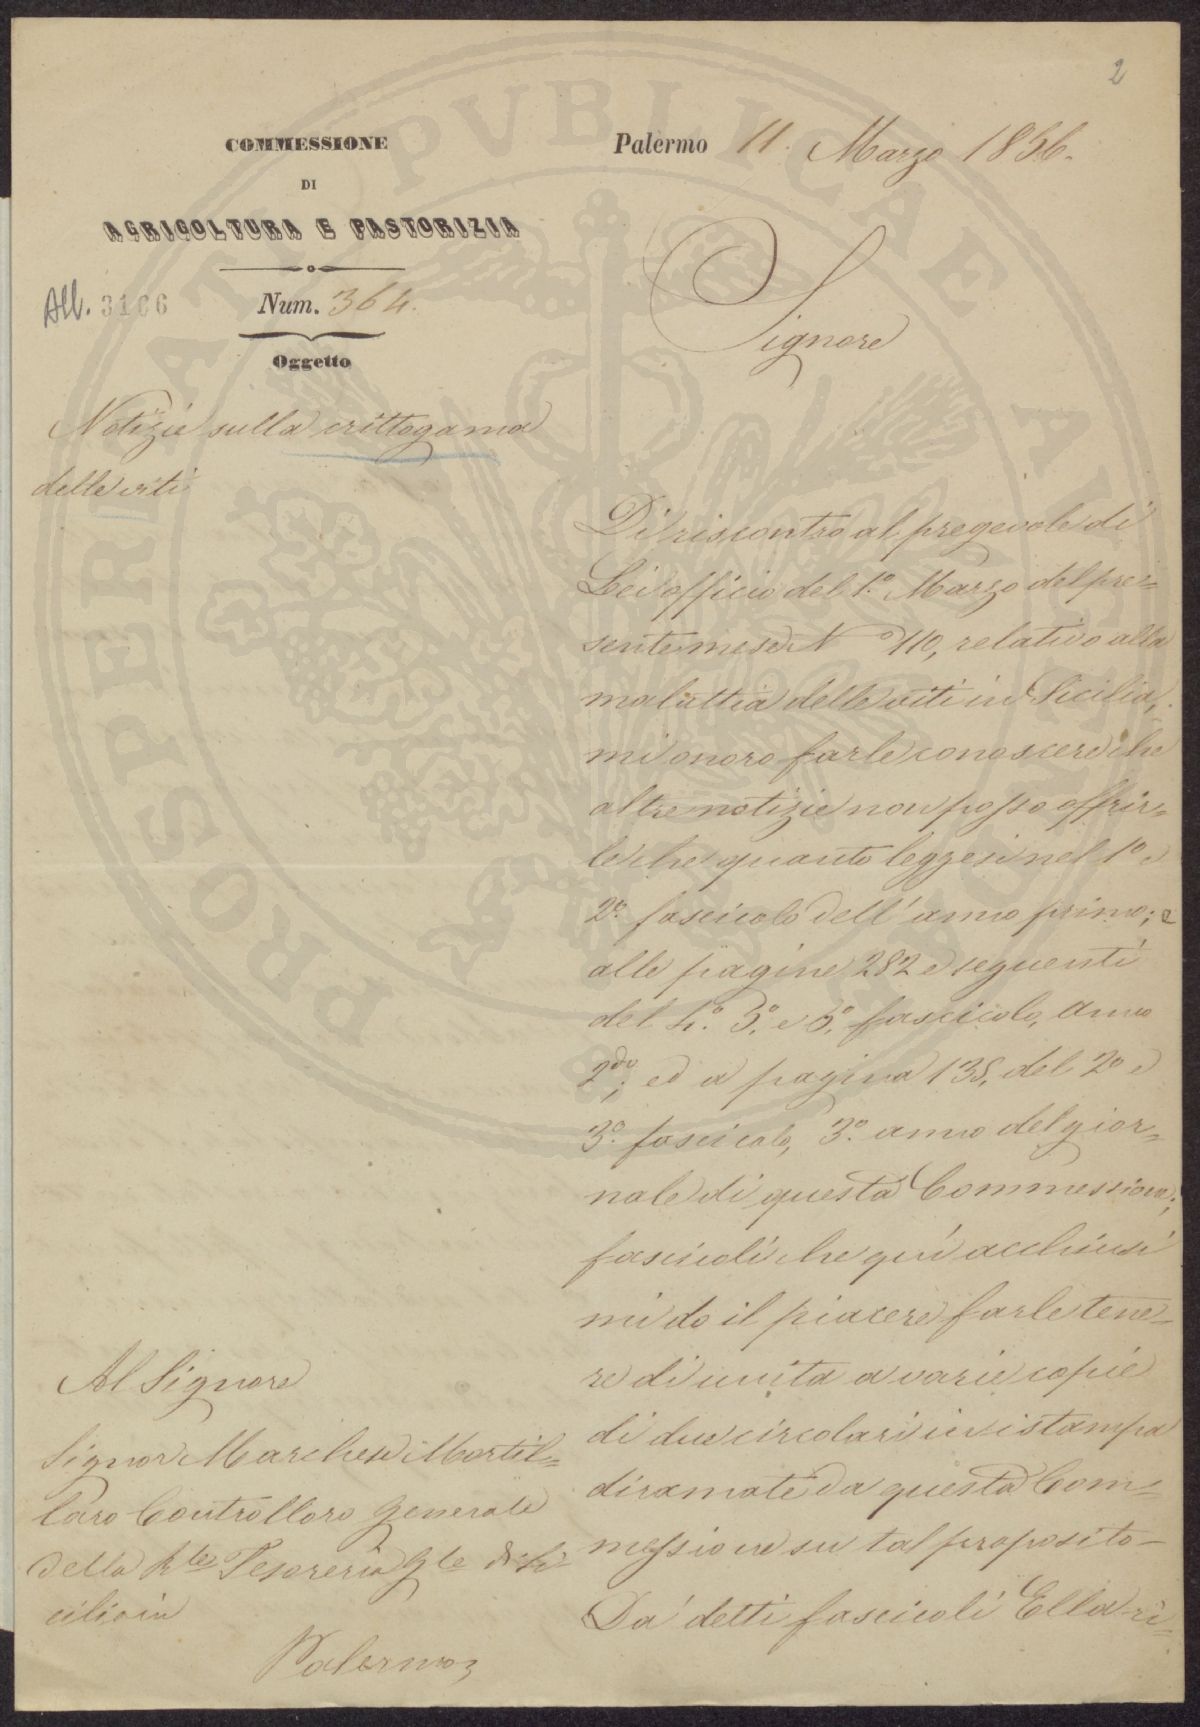 2
COMMESSIONE
DI
AGRICOLTURA E PASTORIZIA
All. 3166
Num. 364.
Oggetto
Notizie sulla crittogama
delle viti
Palermo 11. Marzo 1856.
Signore
Di riscontro al pregevole di
Lei officio del 1.º Marzo del pre=
sente mese Nº 110, relativo alla
malattia delle viti in Sicilia,
mi onoro farle conoscere che
altre notizie non posso offrir=
le che quanto leggesi nel 1º e
2º. fascicolo dell'anno primo; e
alle pagine 282 e seguenti
del 4.º 5.º e 6.º fascicolo, anno
2do; ed a pagina 135, del 2º e
3º. fascicolo, 3º. anno del gior=
nale di questa Commessione;
fascicoli che quí acchiusi
mi do il piacere farle tene=
re di unita a varie copie
di due circolari in istampa
diramate da questa Com=
messione su tal proposito—
Da' detti fascicoli Ella ri=
Al Signore
Signor Marchese Mortil=
laro Controlloro Generale
della Rle Tesoreria Gle di Si=
cilia in
Palermo
PROSPERITATI PVBLICAE AVGENDAE